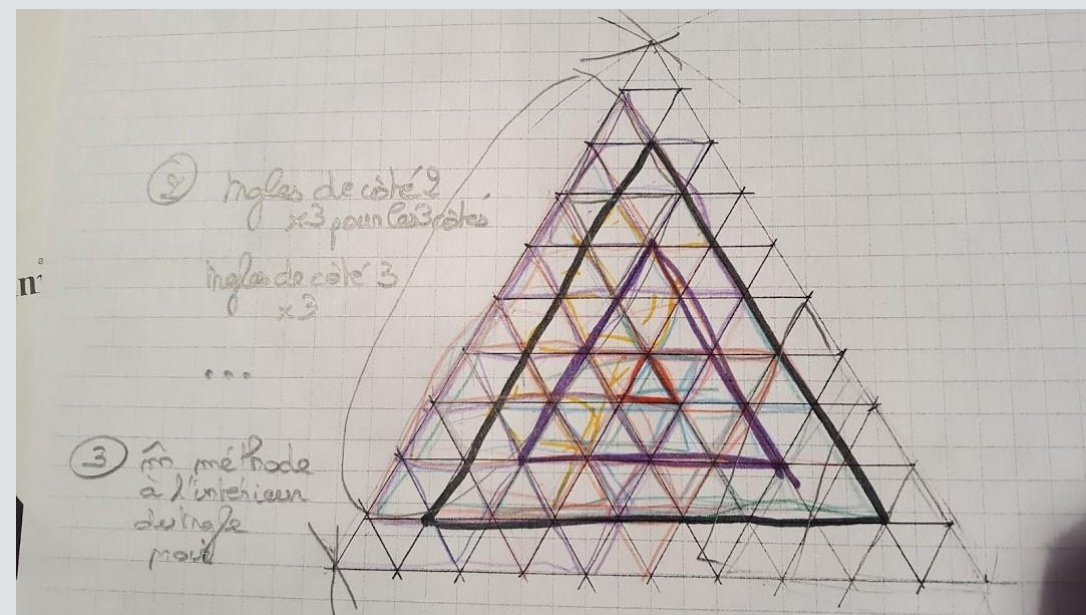 ② trgles de côté 2
x3 pour les 3 côtés
trgles de côté 3
x3
...
③ m̂ méthode
à l'intérieur
du trgle
noir